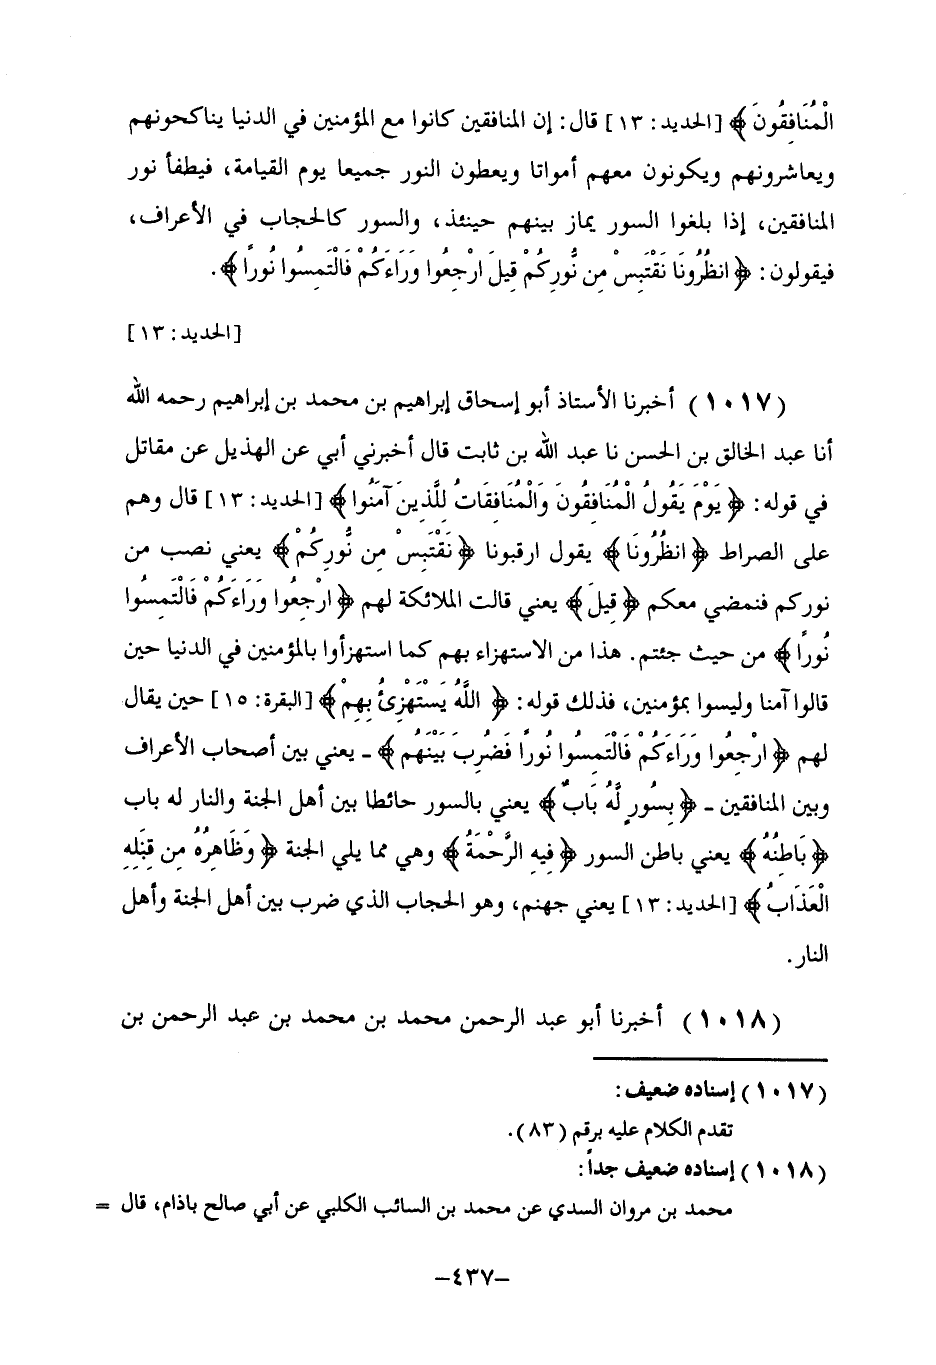 الْمُنَافِقُونَ ﴾ [الحديد: ١٣] قال: إن المنافقين كانوا مع المؤمنين في الدنيا يناكحونهم
ويعاشرونهم ويكونون معهم أمواتا ويعطون النور جميعا يوم القيامة، فيطفأ نور
المنافقين، إذا بلغوا السور يماز بينهم حينئذ، والسور كالحجاب في الأعراف،
فيقولون: ﴿ انظُرُونَا نَقْتَبِسْ مِن نُّورِكُمْ قِيلَ ارْجِعُوا وَرَاءَكُمْ فَالْتَمِسُوا نُوراً ﴾.
[الحديد: ١٣]
(١٠١٧) أخبرنا الأستاذ أبو إسحاق إبراهيم بن محمد بن إبراهيم رحمه الله
أنا عبد الخالق بن الحسن نا عبد الله بن ثابت قال أخبرني أبي عن الهذيل عن مقاتل
في قوله: ﴿ يَوْمَ يَقُولُ الْمُنَافِقُونَ وَالْمُنَافِقَاتُ لِلَّذِينَ آمَنُوا ﴾ [الحديد: ١٣] قال وهم
على الصراط ﴿ انظُرُونَا ﴾ يقول ارقبونا ﴿ نَقْتَبِسْ مِن نُّورِكُمْ ﴾ يعني نصب من
نوركم فنمضي معكم ﴿ قِيلَ ﴾ يعني قالت الملائكة لهم ﴿ ارْجِعُوا وَرَاءَكُمْ فَالْتَمِسُوا
نُوراً ﴾ من حيث جئتم. هذا من الاستهزاء بهم كما استهزأوا بالمؤمنين في الدنيا حين
قالوا آمنا وليسوا بمؤمنين، فذلك قوله: ﴿ اللَّهُ يَسْتَهْزِئُ بِهِمْ ﴾ [البقرة: ١٥] حين يقال
لهم ﴿ ارْجِعُوا وَرَاءَكُمْ فَالْتَمِسُوا نُوراً فَضُرِبَ بَيْنَهُم ﴾ ـ يعني بين أصحاب الأعراف
وبين المنافقين ـ ﴿ بِسُورٍ لَّهُ بَابٌ ﴾ يعني بالسور حائطا بين أهل الجنة والنار له باب
﴿ بَاطِنُهُ ﴾ يعني باطن السور ﴿ فِيهِ الرَّحْمَةُ ﴾ وهي مما يلي الجنة ﴿ وَظَاهِرُهُ مِن قِبَلِهِ
الْعَذَابُ ﴾ [الحديد: ١٣] يعني جهنم، وهو الحجاب الذي ضرب بين أهل الجنة وأهل
النار.
(١٠١٨) أخبرنا أبو عبد الرحمن محمد بن محمد بن عبد الرحمن بن
(١٠١٧) إسناده ضعيف:
تقدم الكلام عليه برقم (٨٣).
(١٠١٨) إسناده ضعيف جداً:
محمد بن مروان السدي عن محمد بن السائب الكلبي عن أبي صالح باذام، قال =
-٤٣٧-